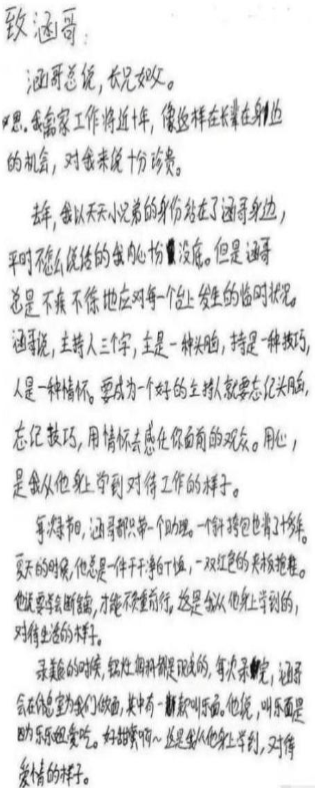 致涵哥:
涵哥总说,长兄如父。
思。我离家工作将近十年,像这样在长辈在身边
的机会,对我来说十分珍贵。
去年,我以天天小兄弟的身份站在了涵哥身边,
平时不怎么说话的我内心十分没底。但是涵哥
总是不疾不徐地应对每一个台上发生的临时状况。
涵哥说,主持人三个字,主是一种头脑,持是一种技巧,
人是一种情怀。要成为一个好的主持人就要忘记头脑,
忘记技巧,用情怀去感任你面前的观众。用心,
是我从他身上学到对待工作的样子。
每次录节目,涵哥都只带一个助理。一个斜挎包也背了十多年。
夏天的时候,他总是一件干干净的T恤,一双红色的夹板拖鞋。
他说要学会断舍离,才能不负重前行。这是我从他身上学到的,
对待生活的样子。
录美食的时候,锅灶佣料都是现成的,每次录完,涵哥
会在休息室为我们做面,其中有一款叫乐面。他说,叫乐面是
因为乐乐姐爱吃。好甜蜜啊~这是我从他身上学到,对待
爱情的样子。